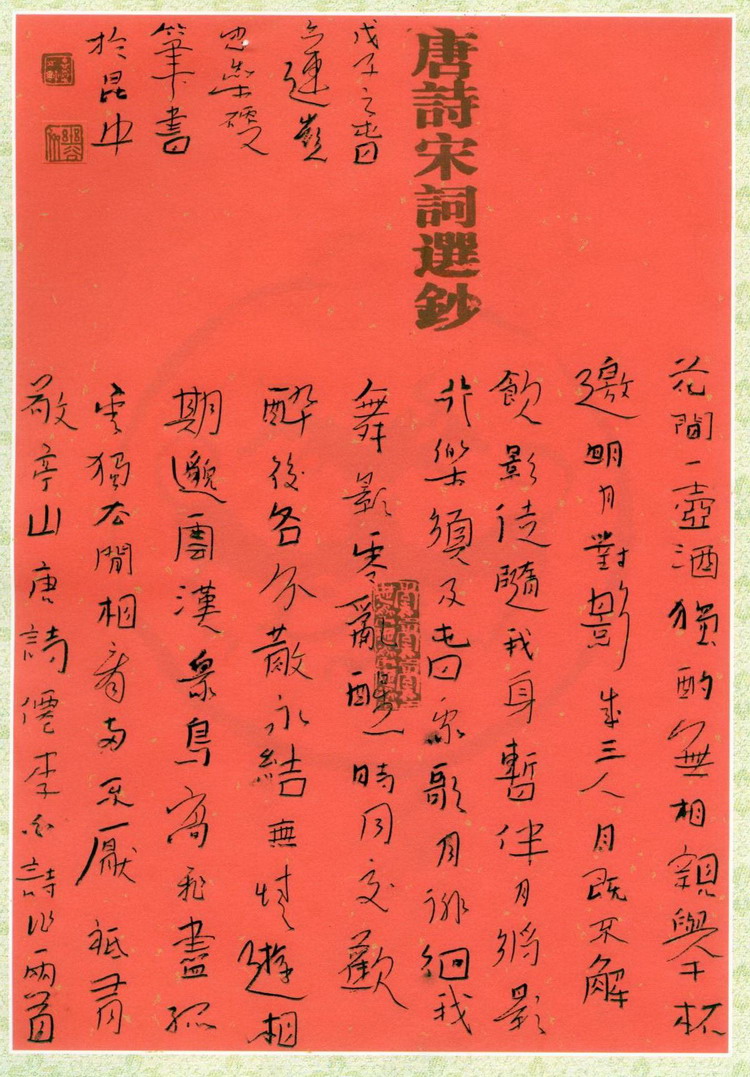 唐詩宋詞選鈔
花間一壺酒獨酌無相親舉杯
邀明月對影成三人月既不解
飲影徒隨我身暫伴月將影
行樂須及春我歌月徘徊我
舞影零亂醒時同交歡
醉後各分散永結無情遊相
期邈雲漢衆鳥高飛盡孤
雲獨去閒相看兩不厭祗有
敬亭山唐詩僊李白詩作兩首
戊子之春
硬
筆書
於昆